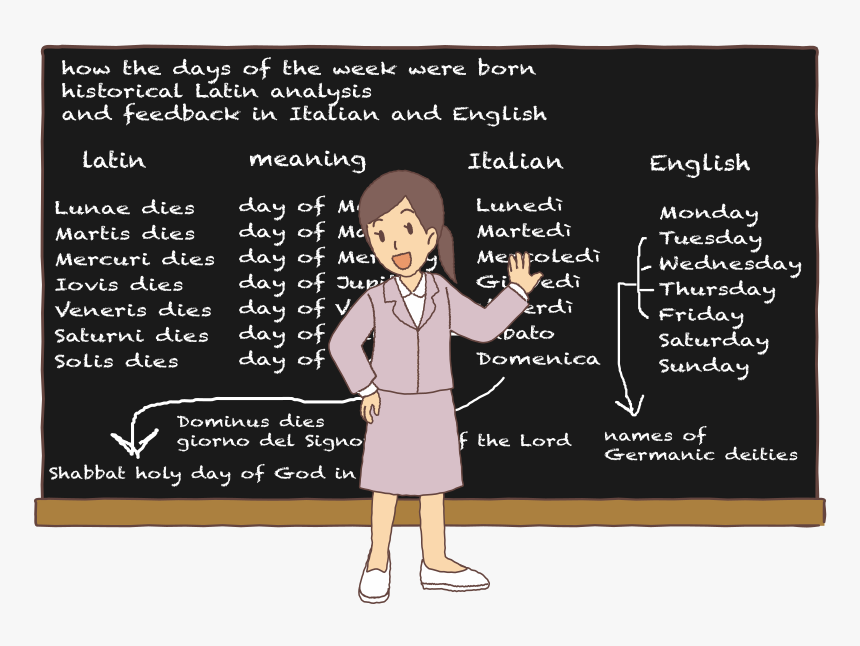 how the days of the week were born
historical Latin analysis
and feedback in Italian and English
latin meaning Italian English
Lunae dies day of Lunedì Monday
Martis dies day of Martedì Tuesday
Mercuri dies day of Mercoledì Wednesday
Iovis dies day of Giovedì Thursday
Veneris dies day of Friday
Saturni dies day of Saturday
Solis dies day of Domenica Sunday
Dominus dies
giorno del f the Lord
names of
Germanic deities
Shabbat holy day of God in